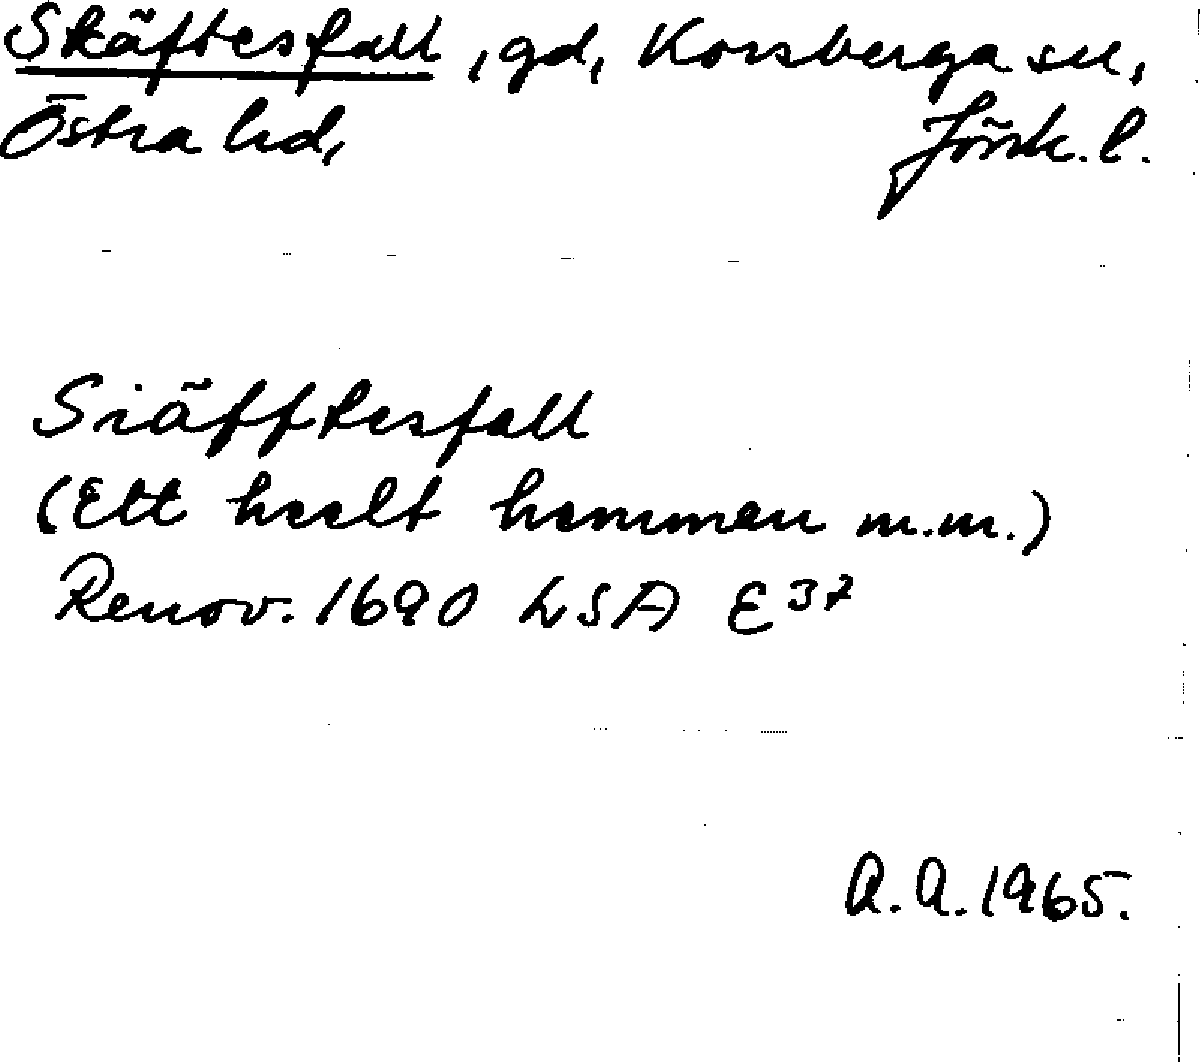 Skäftesfall, gd, Korsberga sn,
Östra hd, Jönk. l.
Siäfftesfall
(Ett heelt hemman m.m.)
Renov. 1690 LSA E37
A.A. 1965.